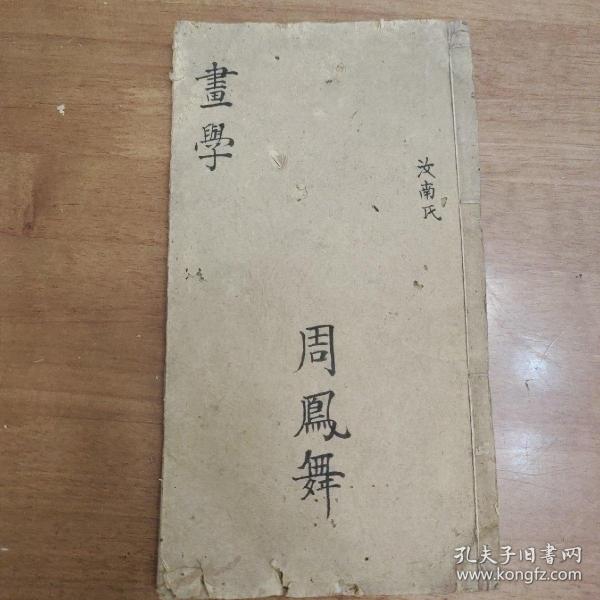 畫學
汝南氏
周鳳舞
孔夫子旧書网
www.kongfz.com